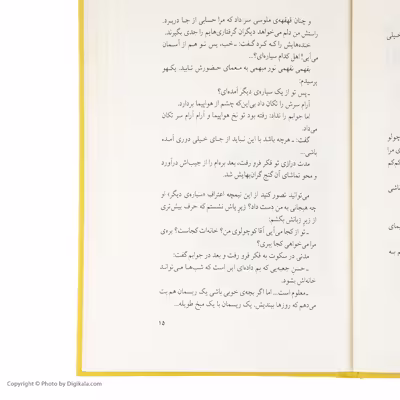 و چنان قهقهه‌ی ملوسی سر داد که مرا حسابی از جا دربرد.
راستش من دلم می‌خواهد دیگران گرفتاری‌هایم را جدی بگیرند.
خنده‌هایش را که کرد گفت: ـ خب، پس تو هم از آسمان
می‌آیی! اهل کدام سیاره‌ای؟...
بفهمی نفهمی نور مبهمی به معمای حضورش تابید. یکهو
پرسیدم:
ـ پس تو از یک سیاره‌ی دیگر آمده‌ای؟
آرام سرش را تکان داد بی‌این‌که چشم از هواپیما بردارد.
اما جوابم را نداد: رفته بود تو نخ هواپیما و آرام آرام سر تکان
می‌داد.
گفت: ـ هرچه باشد با این نباید از جای خیلی دوری آمده
باشی...
مدت درازی تو فکر فرو رفت، بعد بره‌ام را از جیبش درآورد
و محو تماشای آن گنج گران‌بهایش شد.
می‌توانید تصور کنید از این نیمچه اعتراف «سیاره‌ی دیگر» او
چه هیجانی به من دست داد؟ زیر پاش نشستم که حرف بیش‌تری
از زیر زبانش بکشم:
ـ تو از کجا می‌آیی آقا کوچولوی من؟ خانه‌ات کجاست؟ بره‌ی
مرا می‌خواهی کجا ببری؟
مدتی در سکوت به فکر فرو رفت و بعد در جوابم گفت:
ـ حسن جعبه‌یی که بم داده‌ای این است که شب‌ها می‌تواند
خانه‌اش بشود.
ـ معلوم است... اما اگر بچه‌ی خوبی باشی یک ریسمان هم بت
می‌دهم که روزها ببندیش. یک ریسمان با یک میخ طویله...
۱۵
خیلی
Copyright © Photo by Digikala.com